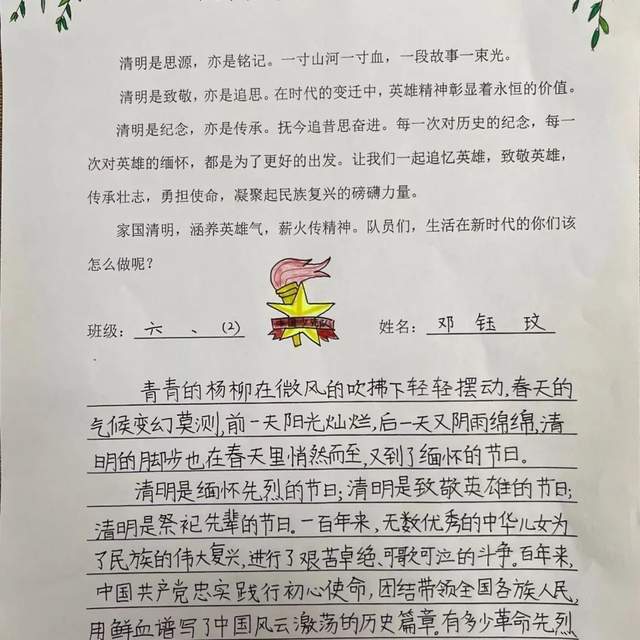 清明是思源，亦是铭记。一寸山河一寸血，一段故事一束光。
清明是致敬，亦是追思。在时代的变迁中，英雄精神彰显着永恒的价值。
清明是纪念，亦是传承。抚今追昔思奋进。每一次对历史的纪念，每一
次对英雄的缅怀，都是为了更好的出发。让我们一起追忆英雄，致敬英雄，
传承壮志，勇担使命，凝聚起民族复兴的磅礴力量。
家国清明，涵养英雄气，薪火传精神。队员们，生活在新时代的你们该
怎么做呢？
中国少先队
班级：六、(2) 姓名：邓钰玟
青青的杨柳在微风的吹拂下轻轻摆动,春天的
气候变幻莫测,前一天阳光灿烂,后一天又阴雨绵绵,清
明的脚步也在春天里悄然而至,又到了缅怀的节日。
清明是缅怀先烈的节日;清明是致敬英雄的节日;
清明是祭祀先辈的节日。一百年来,无数优秀的中华儿女为
了民族的伟大复兴,进行了艰苦卓绝、可歌可泣的斗争。百年来,
中国共产党忠实践行初心使命,团结带领全国各族人民,
用鲜血谱写了中国风云激荡的历史篇章。有多少革命先烈